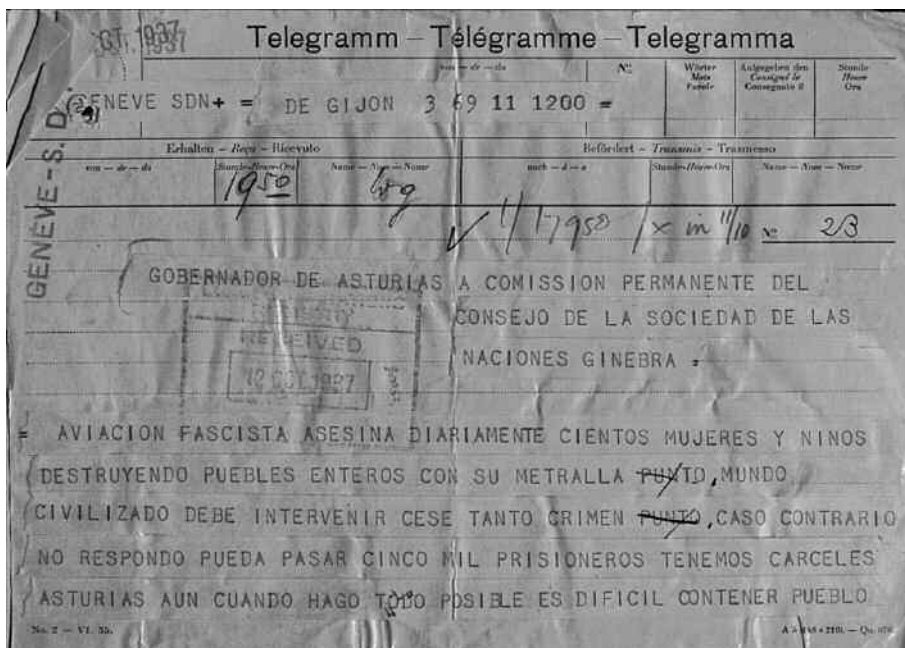 OCT. 1937
Telegramm – Télégramme – Telegramma
von — de — da
Nº
Wörter
Mots
Parole
Aufgegeben den
Consigné le
Consegnato il
Stunde
Heure
Ora
GENEVE SDN+ = DE GIJON 3 69 11 1200 =
GENÈVE-S. D.
Erhalten – Reçu – Ricevuto
Befördert – Transmis – Trasmesso
von — de — da
Stunde-Heure-Ora
Name — Nom — Nome
nach — à — a
Stunde-Heure-Ora
Name — Nom — Nome
1950
1950 / x in 11/10 Nº 2/3
GOBERNADOR DE ASTURIAS A COMISSION PERMANENTE DEL
CONSEJO DE LA SOCIEDAD DE LAS
NACIONES GINEBRA =
RECEIVED
12 OCT 1937
= AVIACION FASCISTA ASESINA DIARIAMENTE CIENTOS MUJERES Y NINOS
DESTRUYENDO PUEBLES ENTEROS CON SU METRALLA PUNTO, MUNDO
CIVILIZADO DEBE INTERVENIR CESE TANTO CRIMEN PUNTO, CASO CONTRARIO
NO RESPONDO PUEDA PASAR CINCO MIL PRISIONEROS TENEMOS CARCELES
ASTURIAS AUN CUANDO HAGO TODO POSIBLE ES DIFICIL CONTENER PUEBLO
No. 2 — VI. 35.